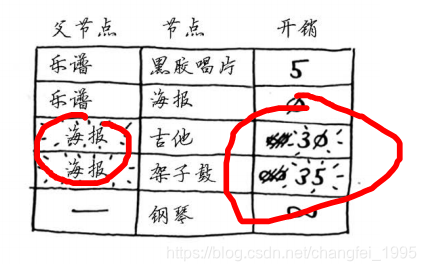 父节点 节点 开销
乐谱 黑胶唱片 5
乐谱 海报 0
海报 吉他 30
海报 架子鼓 35
— 钢琴 ∞
https://blog.csdn.net/changfei_1995